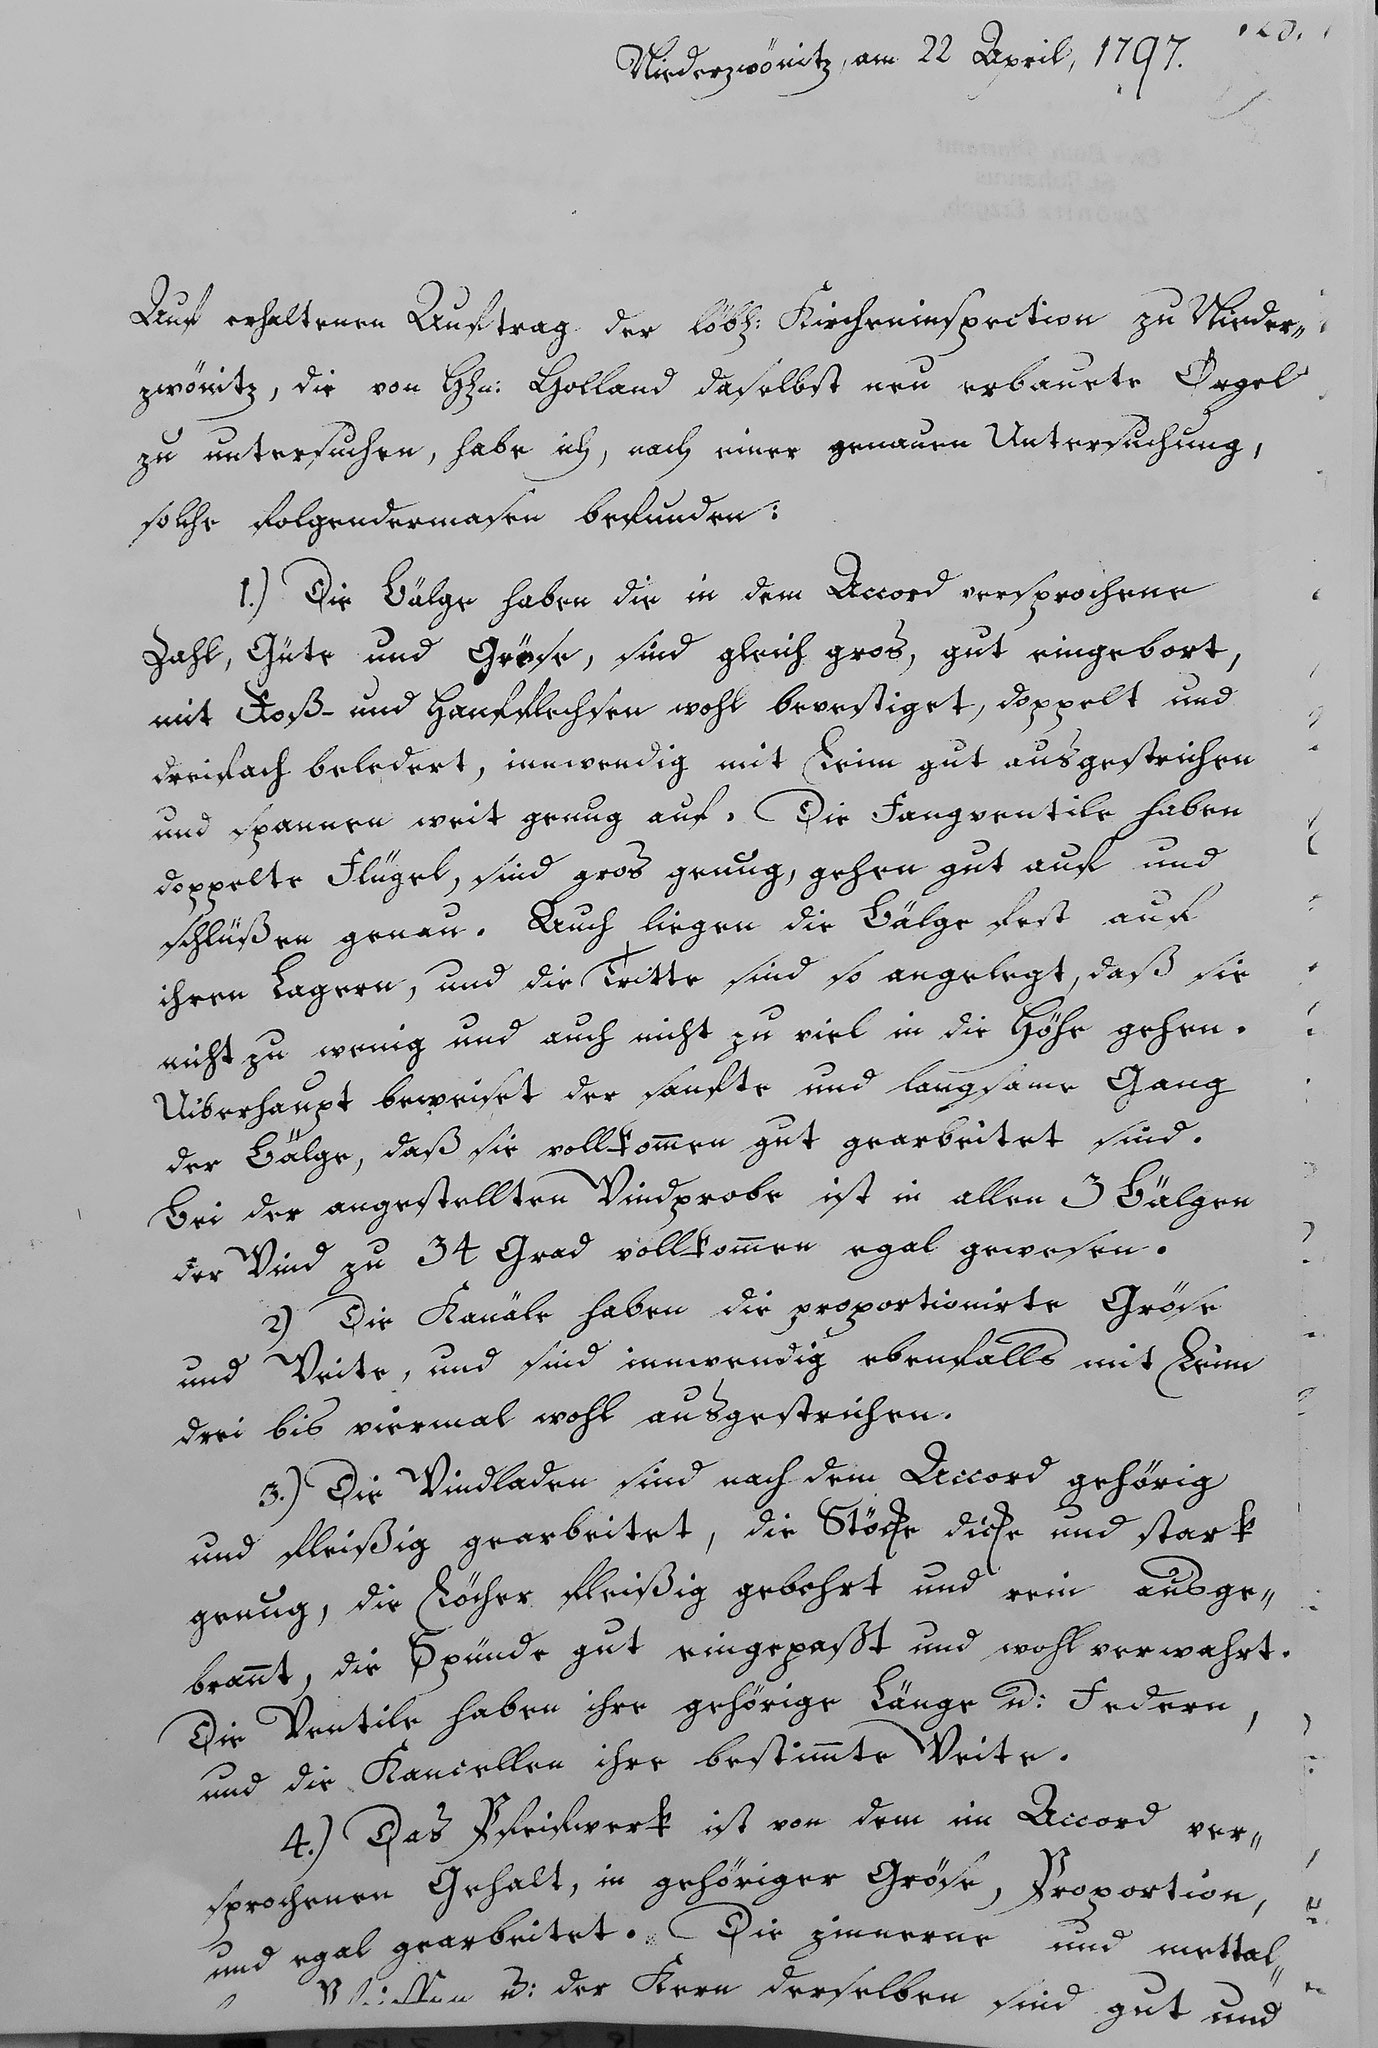 Niederzwönitz, am 22 April, 1797.
Auf erhaltenen Auftrag der löbl: Kircheninspection zu Nieder„
zwönitz, die von Hrn: Holland daselbst neu erbauete Orgel
zu untersuchen, habe ich, nach einer genauen Untersuchung,
solche folgendermasen befunden:
1.) Die Bälge haben die in dem Accord versprochene
Zahl, Güte und Gröse, sind gleich gros, gut eingebort,
mit Roß- und Hanfflechsen wohl bevestiget, doppelt und
dreifach beledert, innwendig mit Leim gut ausgestrichen
und spannen weit genug auf. Die Fangventile haben
doppelte Flügel, sind gros genug, gehen gut auf und
schlüßen genau. Auch liegen die Bälge fest auf
ihren Lagern, und die Tritte sind so angelegt, daß sie
nicht zu wenig und auch nicht zu viel in die Höhe gehen.
Uiberhaupt beweiset der sanfte und langsame Gang
der Bälge, daß sie vollkom̄en gut gearbeitet sind.
Bei der angestellten Windprobe ist in allen 3 Bälgen
der Wind zu 34 Grad vollkom̄en egal gewesen.
2) Die Kanäle haben die proportionirte Gröse
und Weite, und sind innwendig ebenfalls mit Leim
drei bis viermal wohl ausgestrichen.
3.) Die Windladen sind nach dem Accord gehörig
und fleißig gearbeitet, die Stöcke dicke und stark
genug, die Löcher fleißig gebohrt und rein ausge„
bran̄t, die Spünde gut eingepaßt und wohl verwahrt.
Die Ventile haben ihre gehörige Länge u: Federn,
und die Kancellen ihre bestim̄te Weite.
4.) Das Pfeifwerk ist von dem im Accord ver„
sprochenen Gehalt, in gehöriger Gröse, Proportion,
und egal gearbeitet. Die zinnerne und mettal„
Pfeiffen u: der Kern derselben sind gut und